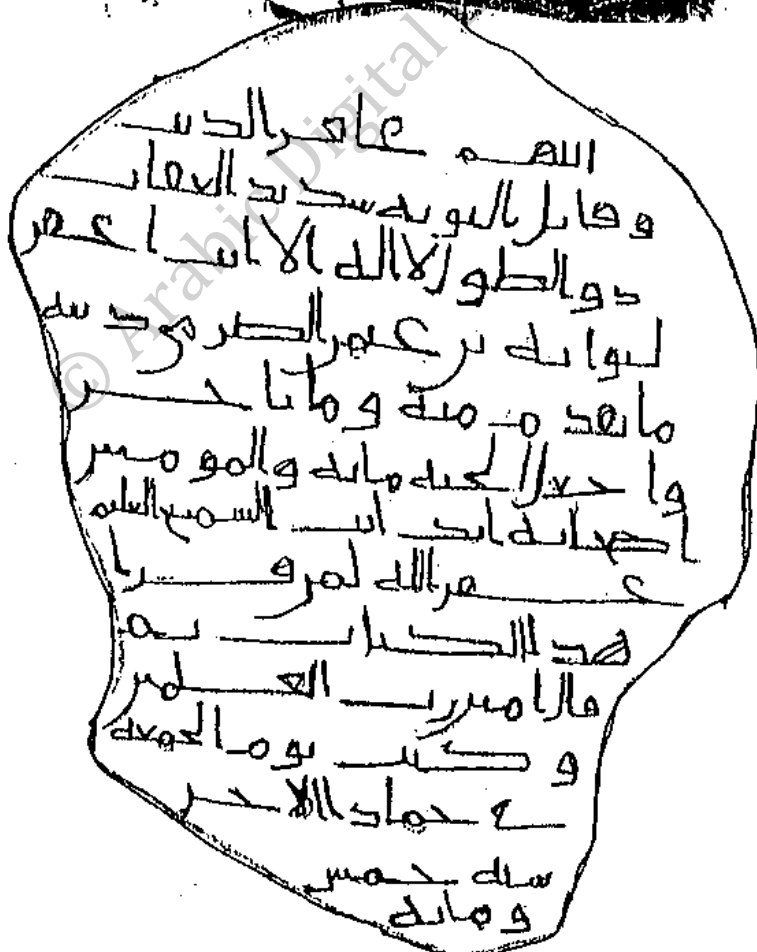 اللهم غافر الذنب
وقابل التوبة شديد العقاب
ذو الطول لا اله الا انت اغفر
لثوابة بن عمير الحضرمي ذنبه
ما تقدم منه وما تاخر
واجعل الجنة مابه والمومنين
اصحابه انك انت السميع العليم
غفر الله لمن قرا
هذا الكتاب ثم
قال امين رب العلمين
وكتب يوم الجمعة
في جمادى الاخر
سنة خمس
ومائة
© Arabic Digital